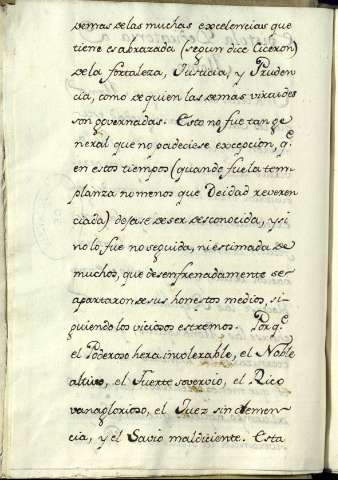 demas de las muchas excelencias que
tiene es abrazada (segun dice Ciceron)
de la fortaleza, Justicia, y Pruden
cia, como de quien las demas virtudes
son governadas. Esto no fue tan ge
neral que no padeciese excepcion, q.e
en estos tiempos (quando fue la tem
planza no menos que Deidad reveren
ciada) dejase de ser desconocida, y si
no lo fue no seguida, ni estimada de
muchos, que desenfrenadamente se
apartaron de sus honestos medios, si
guiendo los viciosos estremos. Porq.e
el Poderoso hera intolerable, el Noble
altivo, el Fuerte sovervio, el Rico
vanaglorioso, el Juez sin clemen
cia, y el Savio maldiciente. Esta